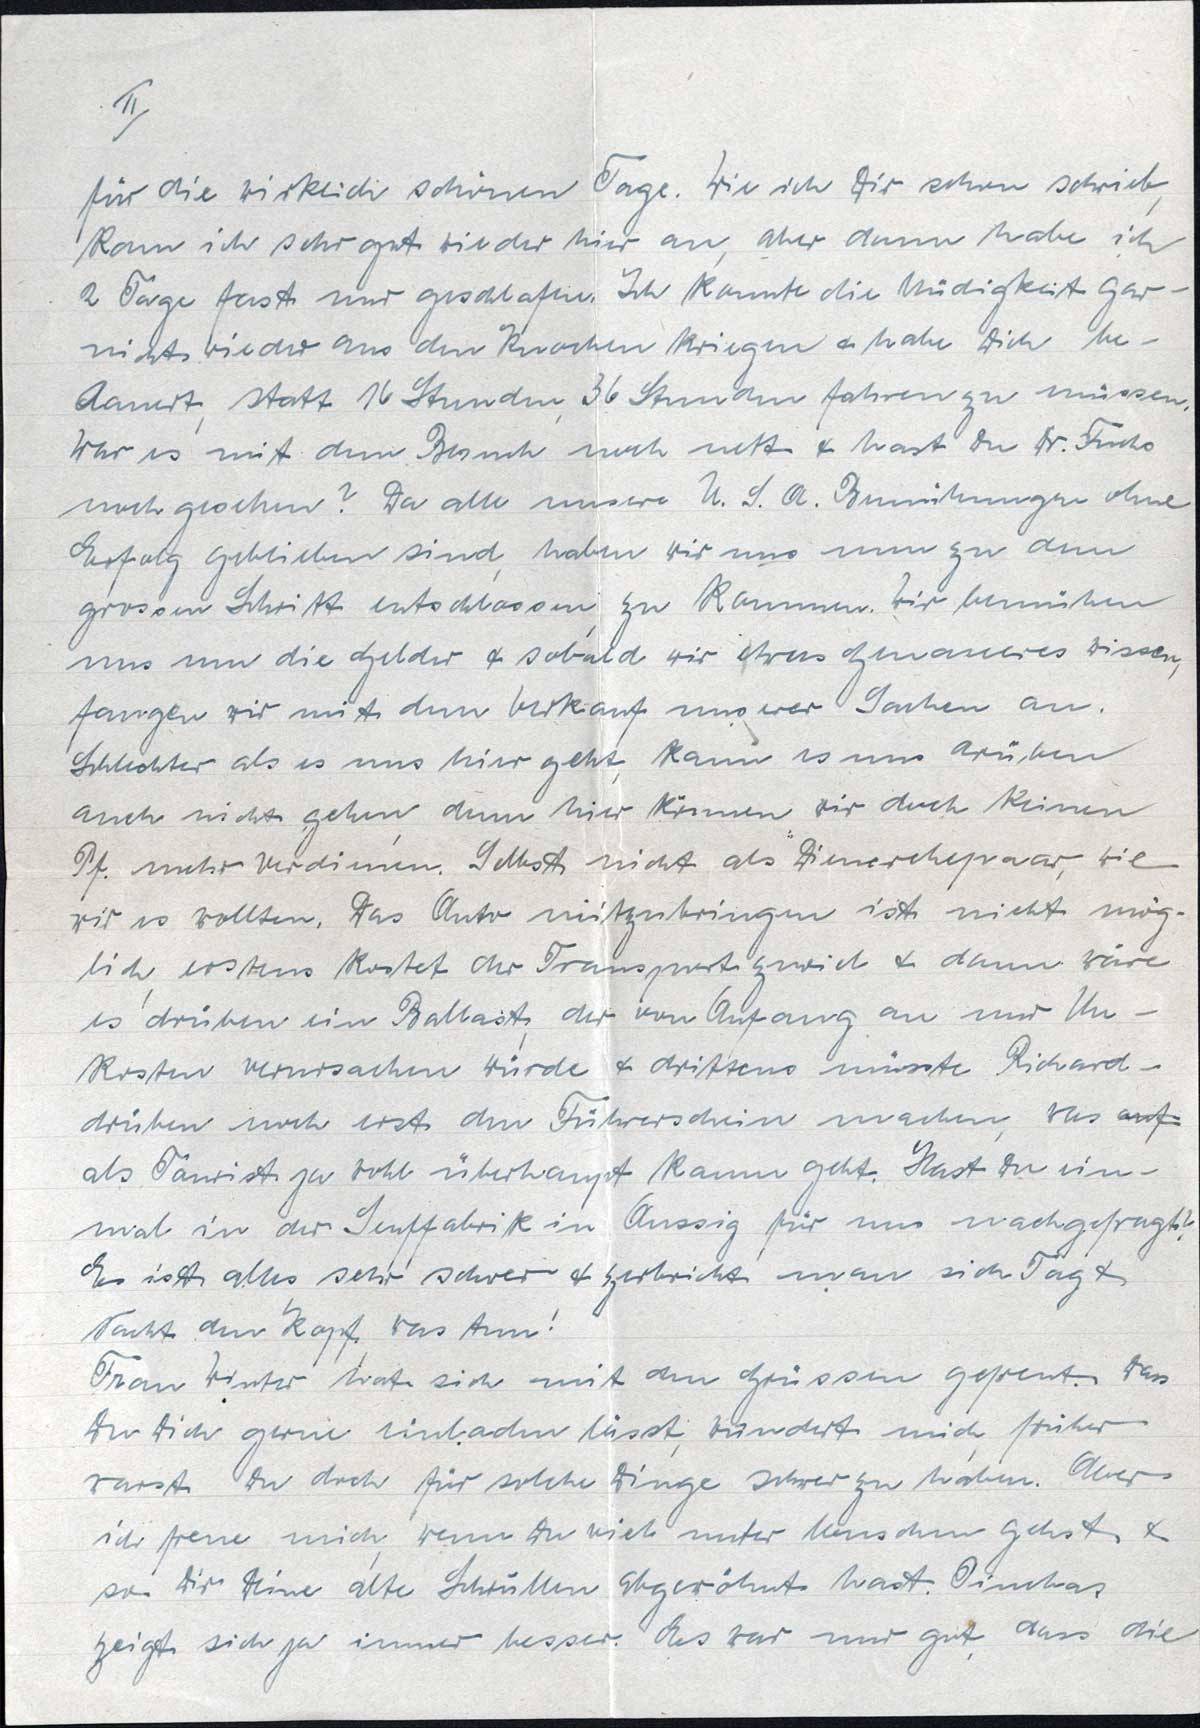 II/
für die wirklich schönen Tage. Wie ich Dir schon schrieb,
kam ich sehr gut wieder hier an, aber dann habe ich
2 Tage fast nur geschlafen. Ich konnte die Müdigkeit gar-
nicht wieder aus den Knochen kriegen & habe Dich be-
dauert, statt 16 Stunden, 36 Stunden fahren zu müssen.
War es mit dem Besuch noch nett & hast Du Dr. Fuchs
noch gesehen? Da alle unsere U. S. A. Bemühungen ohne
Erfolg geblieben sind, haben wir uns nun zu dem
grossen Schritt entschlossen, zu kommen. Wir bemühen
uns um die Gelder & sobald wir etwas genaueres wissen,
fangen wir mit dem Verkauf unserer Sachen an.
Schlechter als es uns hier geht, kann es uns drüben
auch nicht gehen, denn hier können wir doch keinen
Pf. mehr verdienen. Selbst nicht als "Dienerehepaar, wie
wir es wollten. Das Auto mitzubringen ist nicht mög-
lich, erstens kostet der Transport zuviel & dann wäre
es drüben ein Ballast, der von Anfang an nur Un-
kosten verursachen würde & drittens müsste Richard-
drüben noch erst den Führerschein machen, was auf
als Tourist ja wohl überhaupt kaum geht. Hast Du ein-
mal in der Senffabrik in Aussig für uns nachgefragt?
Es ist alles sehr schwer & zerbricht man sich Tag &
Nacht den Kopf, was tun!
Frau Winter hat sich mit den Grüssen gefreut. Dass
Du Dich gerne einladen lässt, wundert mich, früher
warst Du doch für solche Dinge schwer zu haben. Aber
ich freue mich, wenn Du viel unter Menschen gehst &
so Dir Deine alte Schrullen abgewöhnt hast. Pinchas
zeigt sich ja immer besser. Es war nur gut, dass die